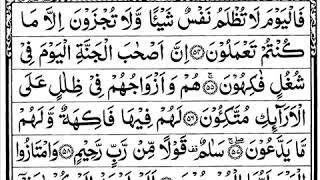 فَالْيَوْمَ لَا تُظْلَمُ نَفْسٌ شَيْـًٔا وَّلَا تُجْزَوْنَ اِلَّا مَا
كُنْتُمْ تَعْمَلُوْنَ ﴿۵۴﴾ اِنَّ اَصْحٰبَ الْجَنَّةِ الْيَوْمَ فِىْ
شُغُلٍ فٰكِهُوْنَ ﴿۵۵﴾ هُمْ وَاَزْوَاجُهُمْ فِىْ ظِلٰلٍ عَلَى
الْاَرَآئِكِ مُتَّكِـُٔوْنَ ﴿۵۶﴾ لَهُمْ فِيْهَا فَاكِهَةٌ وَّلَهُمْ
مَّا يَدَّعُوْنَ ﴿۵۷﴾ سَلٰمٌ قَوْلًا مِّنْ رَّبٍّ رَّحِيْمٍ ﴿۵۸﴾ وَامْتَازُوا